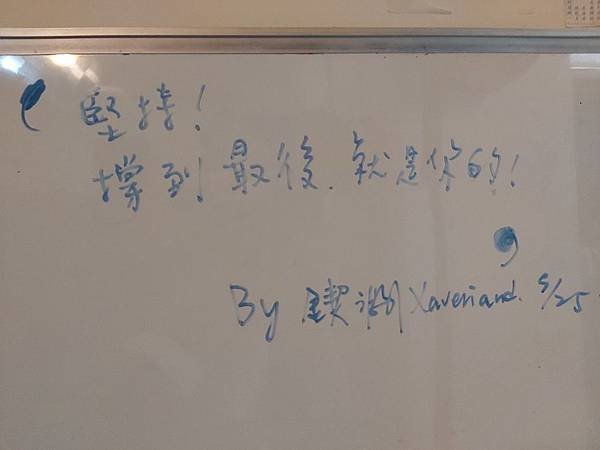 堅持!
撐到最後.就是你的!
By Xaveriand. 5/25